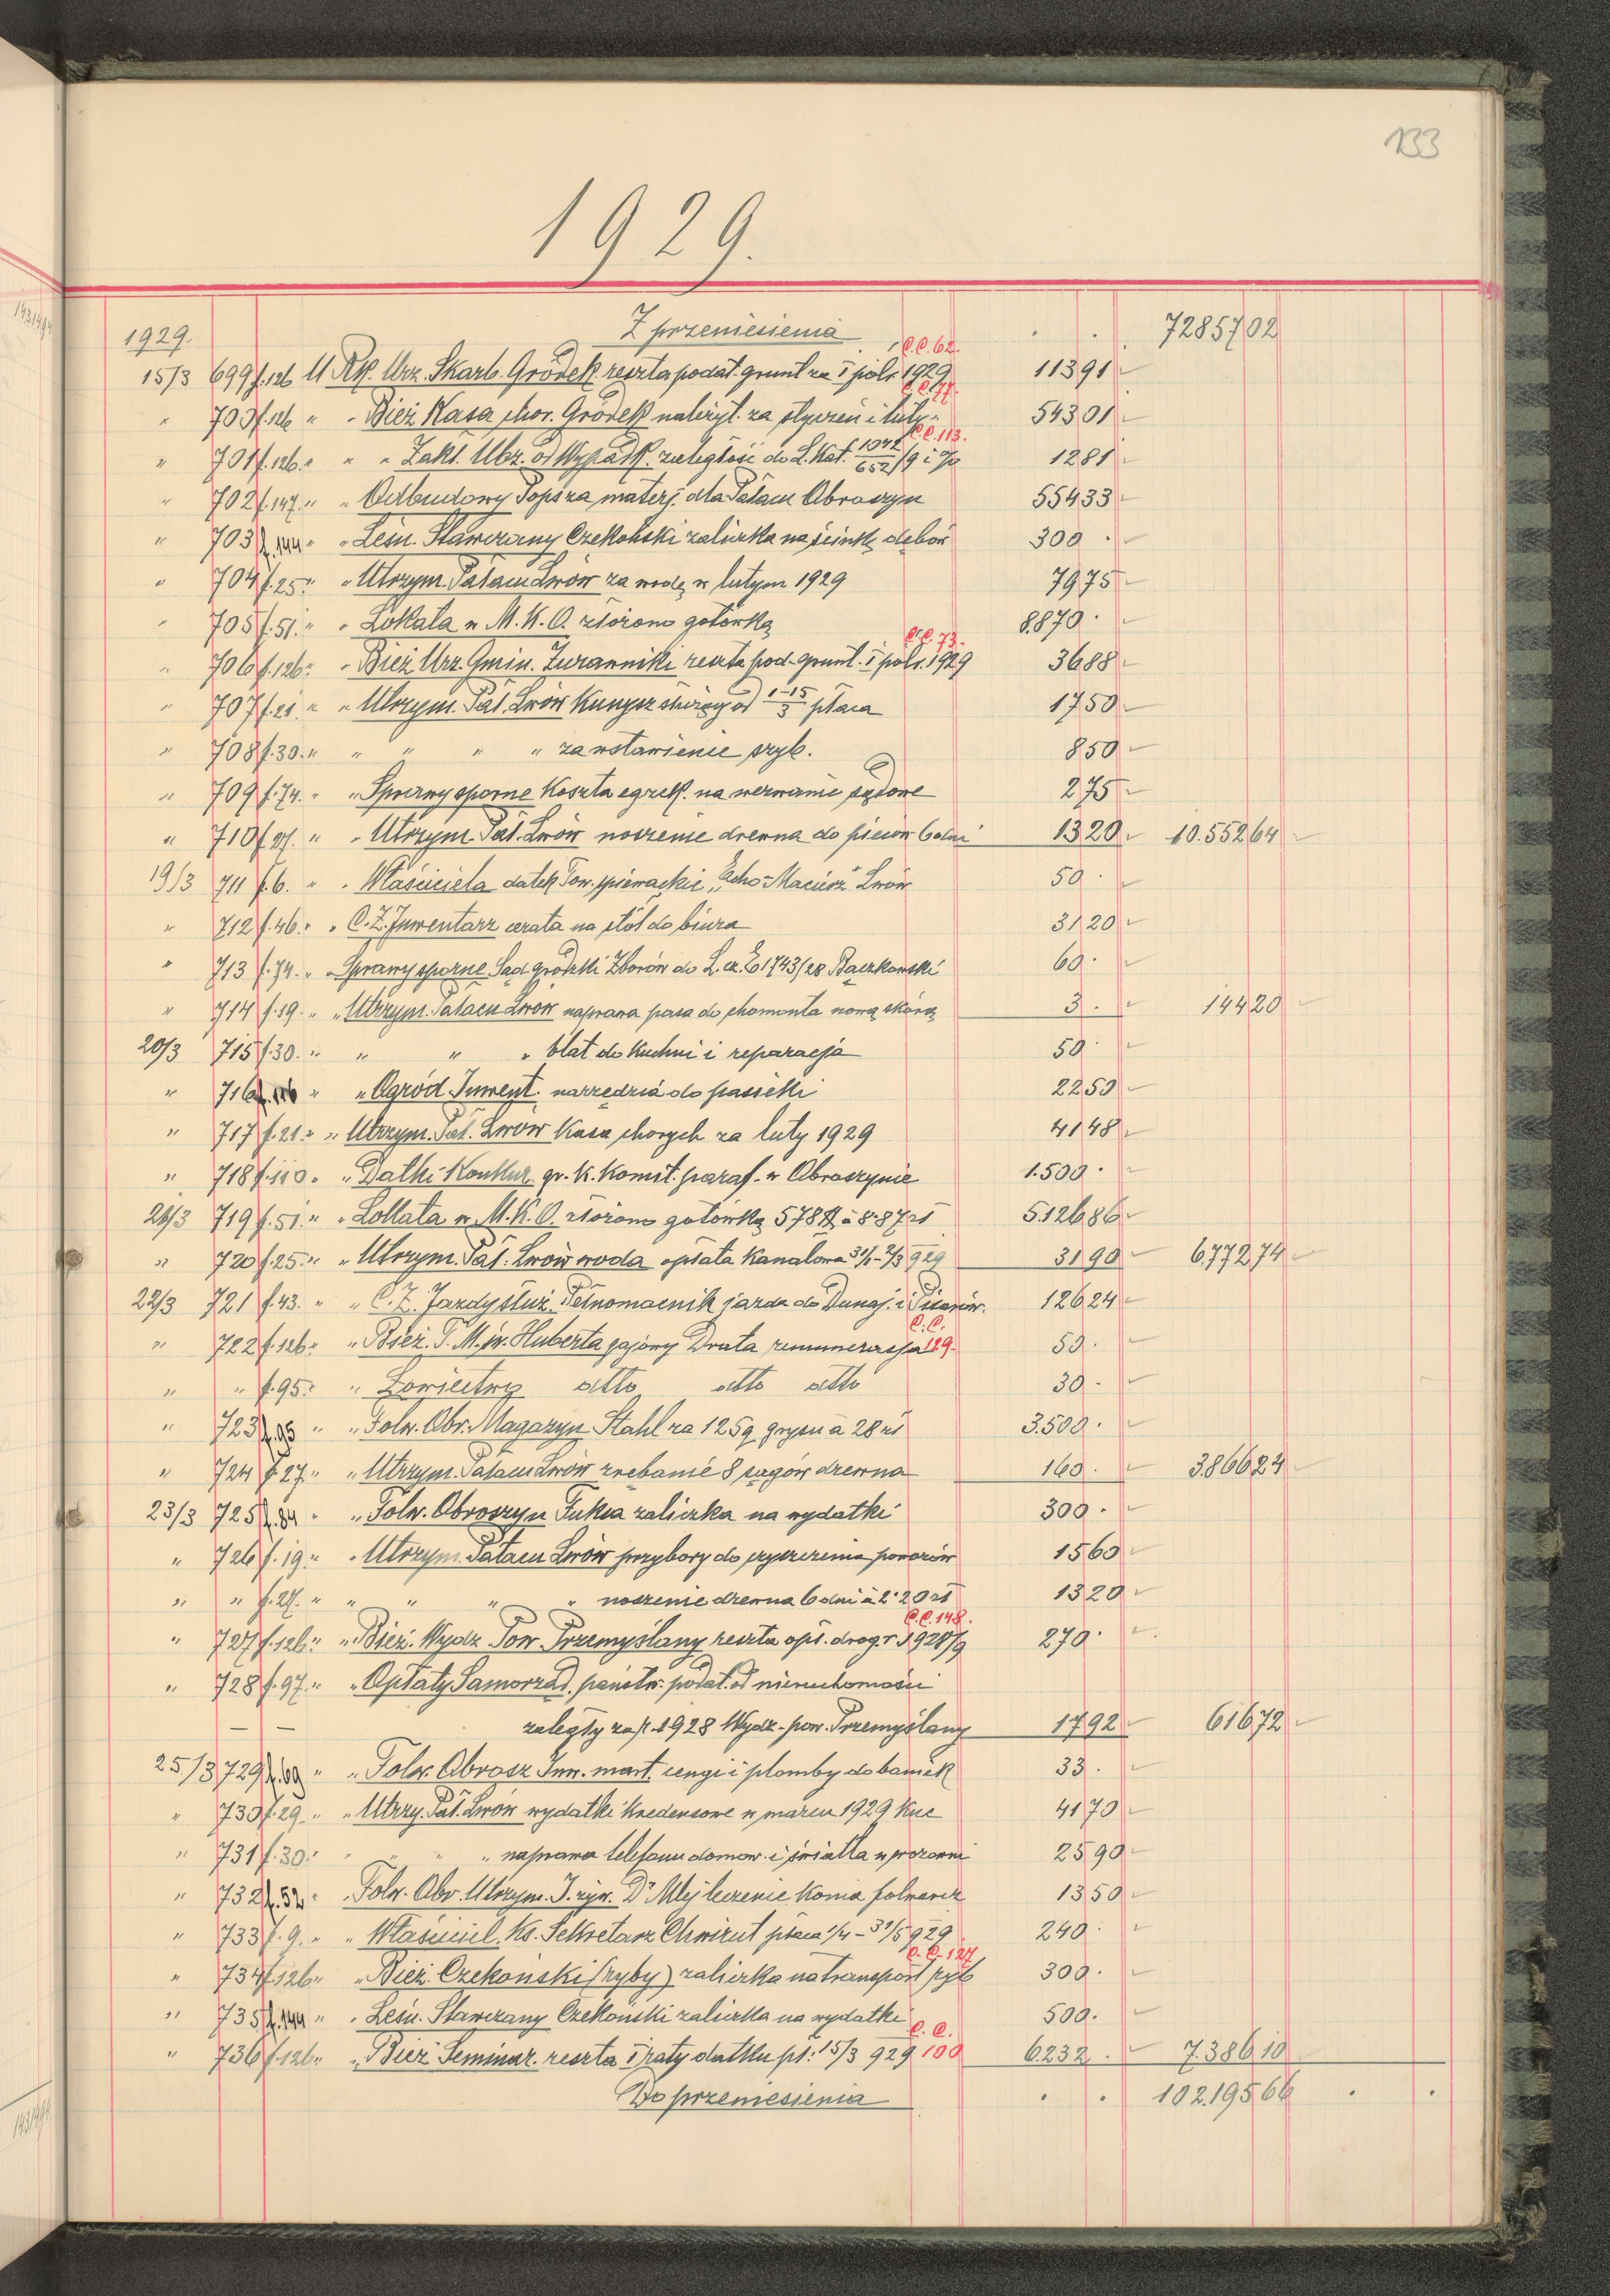 133
1929.
1929. Z przeniesienia . . 72857 02
C.C. 62.
15/3 699 f.126 U Rk. Urz. Skarb. Gródek reszta podat. grunt za I półr. 1929 113 91
C.C. 77.
" 700 f.126 " " Bież Kasa chor. Gródek należyt. za styczeń i luty 543 01
C.C. 113.
" 701 f.126. " " " Zakł. Ubz. od Wypadk. zaległość do L. Kat. 1942/652 12 81
" 702 f.147. " " Odbudowy materj. dla Pałacu Obroszyn 554 33
" 703 f.144 " " Leśn. Stawczany Czekoński zaliczka na ścinkę dębów 300 .
" 704 f.25. " " Utrzym. Pałacu Lwów za wodę w lutym 1929 79 75
" 705 f.51. " " Lokata w M.K.O. złożono gotówką 8.870 .
C.C. 73.
" 706 f.126. " " Bież Urz. Gmin. Żurawniki reszta pod. grunt. I półr. 1929 36 88
" 707 f.21. " " Utrzym. Pał. Lwów Kunysz służący od 1-15/3 płaca 17 50
" 708 f.30. " " " " " za wstawienie szyb. 8 50
" 709 f.74. " " Sprawy sporne Koszta egzek. na wezwanie sądowe 2 75
" 710 f.27. " " Utrzym. Pał. Lwów noszenie drewna do pieców 6 dni 13 20 10.552 64
19/3 711 f.6. " " Właściciela datek Tow. śpiewackie "Echo-Macierz" Lwów 50 .
" 712 f.46. " " C.Z. Inwentarz cerata na stół do biura 31 20
" 713 f.74. " " Sprawy sporne Sąd grodzki Zborów do L. cz. E 1743/28 Baczkowski 60 .
" 714 f.19. " " Utrzym. Pałacu Lwów naprawa pasa do chomonta nową skórą 3 . 144 20
20/3 715 f.30. " " " " blat do Kuchni i reparacja 50 .
" 716 " " Ogród Inwent. narzędzia do pasieki 22 50
" 717 f.21. " " Utrzym. Pał. Lwów Kasa chorych za luty 1929 41 48
" 718 f.110. " " Datki Konkur. gr. k. Komit. paraf. w Obroszynie 1.500 .
21/3 719 f.51. " " Lokata w M.K.O. złożono gotówką 578 $ à 8.87 zł 5.126 86
" 720 f.25. " " Utrzym. Pał. Lwów woda opłata Kanałowa 929 31 90 6.772 74
22/3 721 f.43. " " C.Z. Jazdy służ. Pełnomocnik jazda do Dunaj. i Pisarów. 126 24
C.C.
" 722 f.126. " " Bież. T.M. św. Huberta gajowy Druta remuneracja 129. 50 .
" " f.95. " " Łowiectwo dtto dtto dtto 30 .
" 723 f.93 " " Folw. Obr. Magazyn Stahl za 125 q grysu à 28 zł 3.500 .
" 724 f.27. " " Utrzym. Pałacu Lwów zrębanie 8 sągów drewna 160 . 3.866 24
23/3 725 f.84 " " Folw. Obroszyn Fuksa zaliczka na wydatki 300 .
" 726 f.19. " " Utrzym. Pałacu Lwów przybory do czyszczenia powozów 15 60
" " f.27. " " " " " noszenie drewna 6 dni à 2.20 zł 13 20
C.C. 148.
" 727 f.126. " " Bież. Wydz. Pow. Przemyślany reszta opł. drog. r. 1928/9 270 .
" 728 f.97. " " Opłaty Samorząd. państw. podat. od nieruchomości
— — zaległy za r. 1928 Wydz. pow. Przemyślany 17 92 616 72
25/3 729 f.69 " " Folw. Obrosz Inw. mart. cęgi i plomby do baniek 33 .
" 730 f.29. " " Utrzy. Pał. Lwów wydatki Kredensowe w marcu 1929 Kuc 41 70
" 731 f.30. " " " " naprawa telefonu domow. i światła w wozowni 25 90
" 732 f.52 " " Folw. Obr. Utrzym. I. żyw. Dr Mlej leczenie Konia folwarcz 13 50
" 733 f.9. " " Właściciel. Ks. Sekretarz Chwirut płaca 1/4 - 31/5 929 240 .
C.C. 127
" 734 f.126. " " Bież. Czekoński (ryby) zaliczka na transport ryb 300 .
" 735 f.144 " " Leśn. Stawczany Czekoński zaliczka na wydatki 500 .
C.C.
" 736 f.126. " " Bież Seminar. reszta I raty datku pł: 15/3 929 100 6.232 . 7.386 10
Do przeniesienia . . 102.195 66 . .